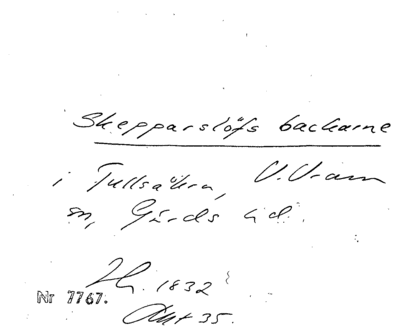 Skepparslöfs backarne
i Tullsåkra, V. Vram
sn, Gärds hd.
1832
Nr 7767.
Akt 35.